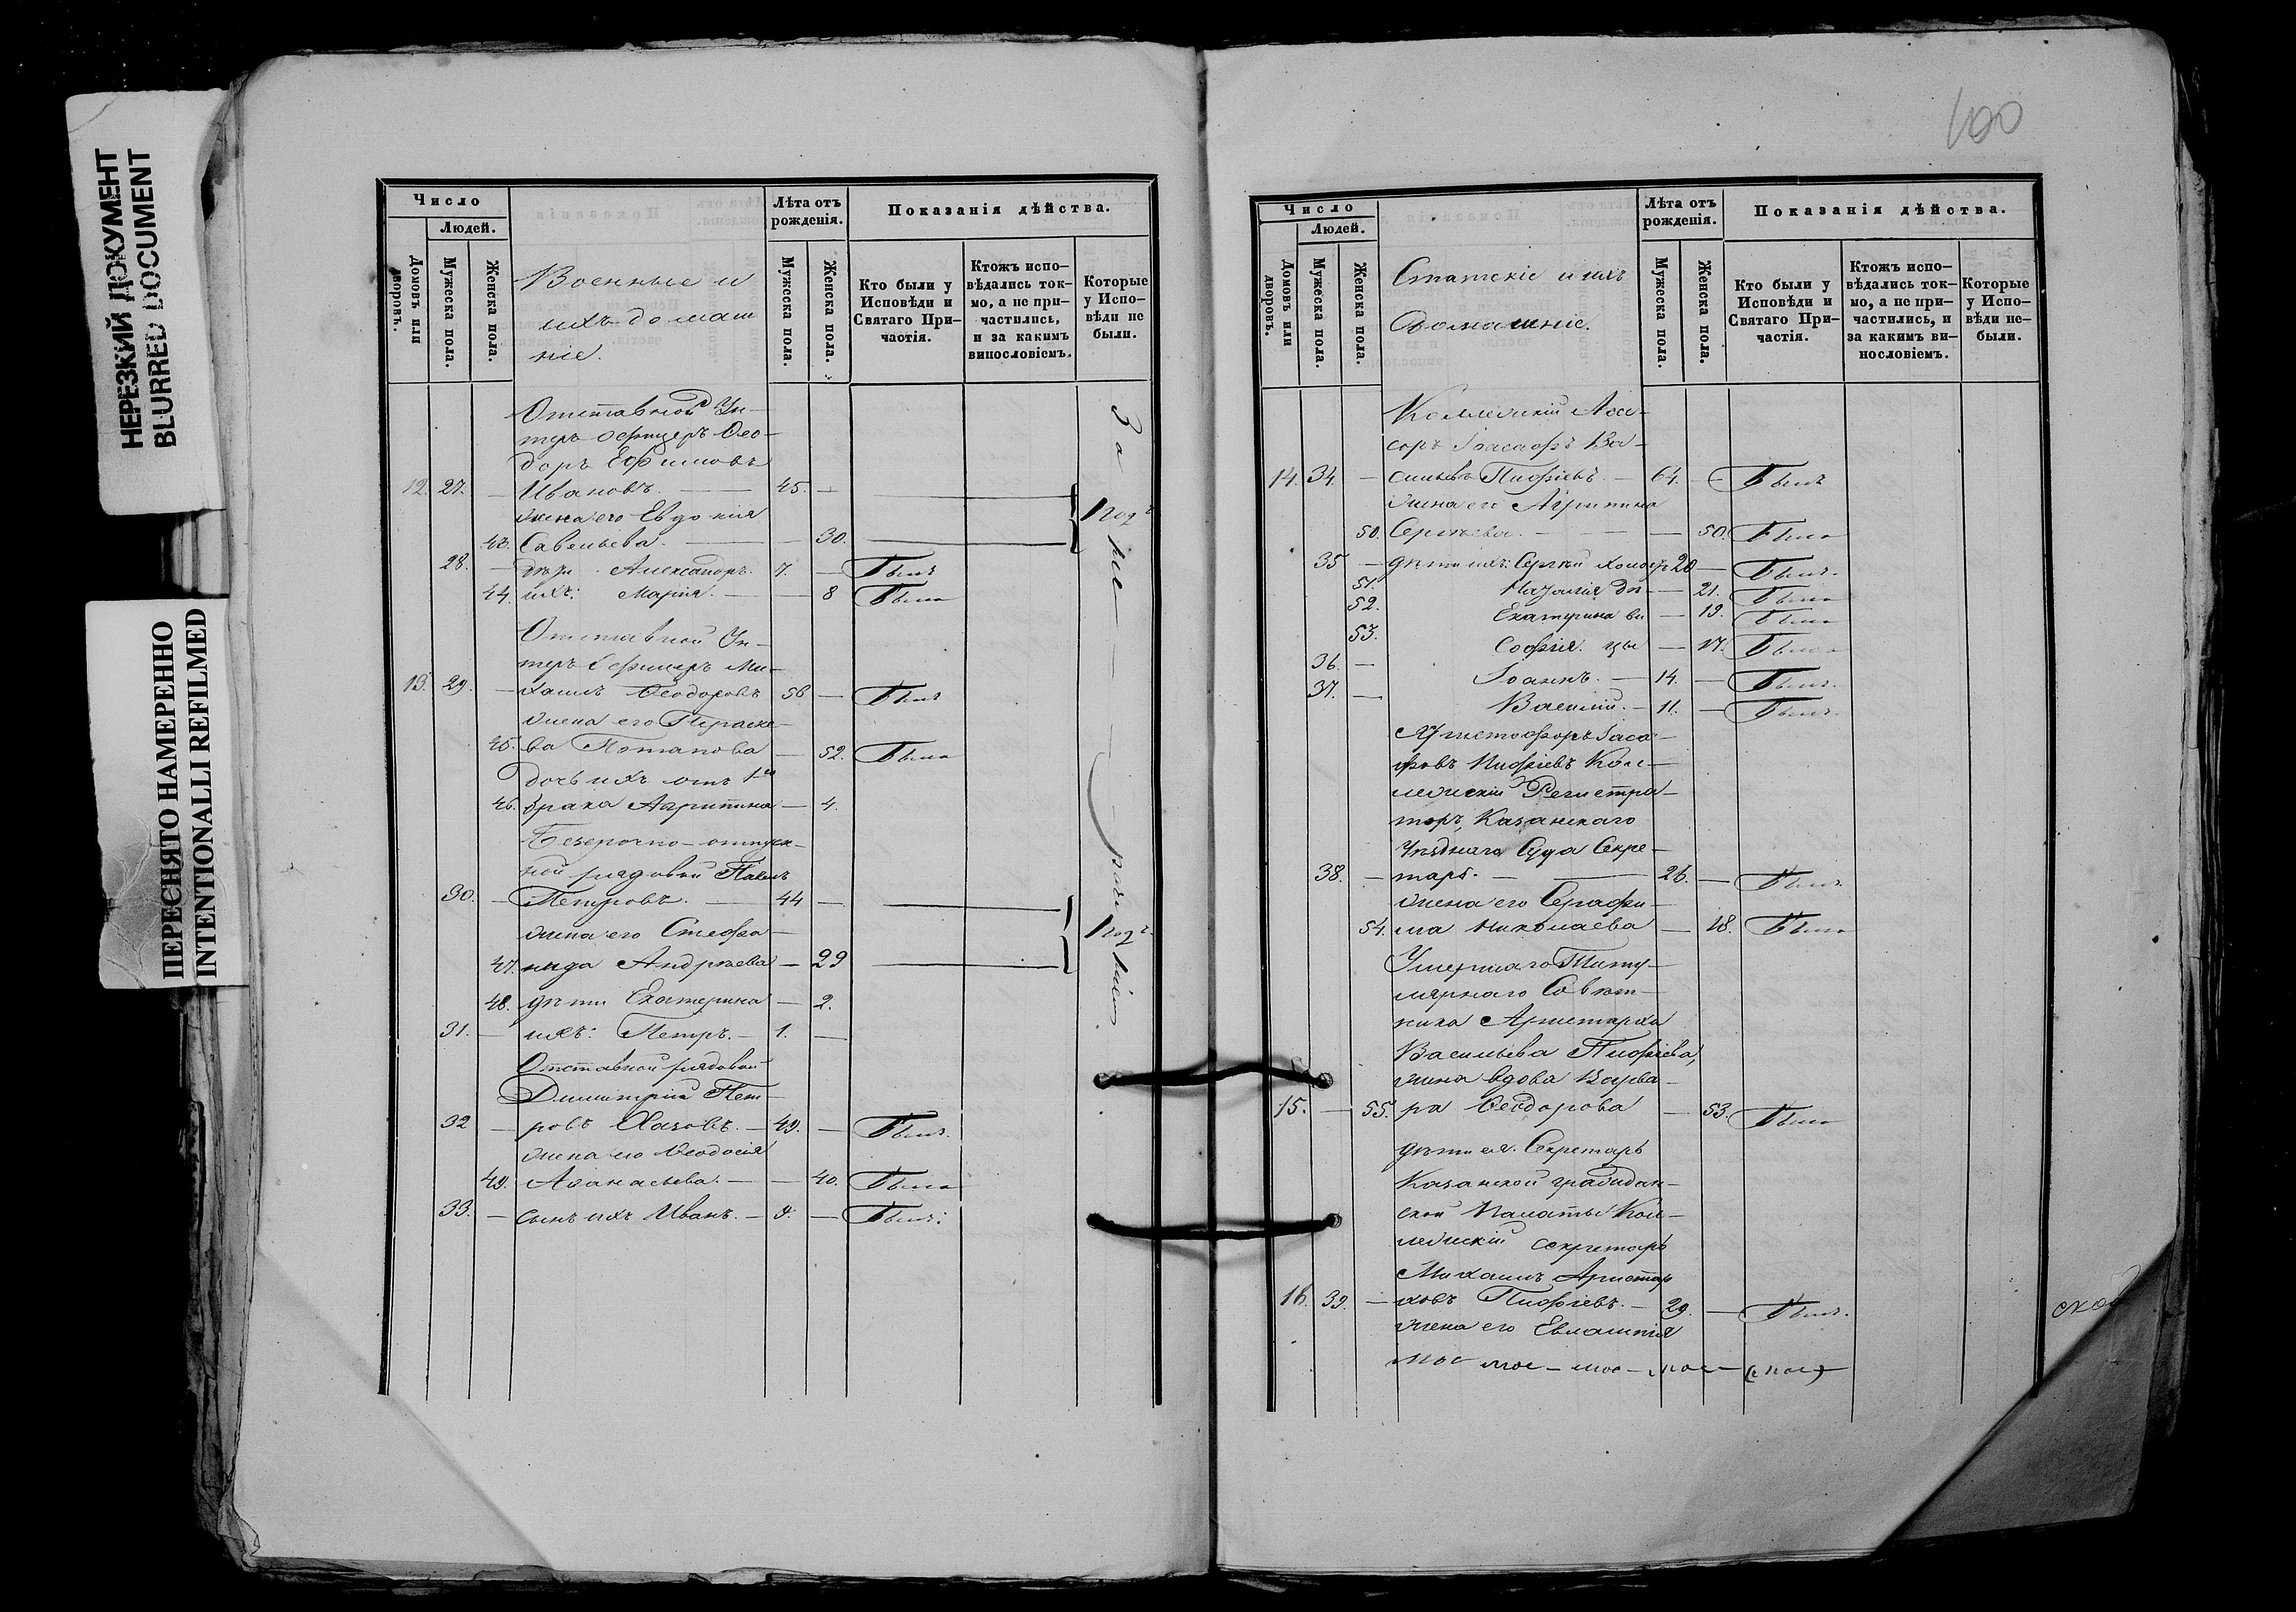 НЕРЕЗКИЙ ДОКУМЕНТ
BLURRED DOCUMENT
ПЕРЕСНЯТО НАМЕРЕННО
INTENTIONALLI REFILMED
Число
Людей.
Домовъ или дворовъ.
Мужеска пола.
Женска пола.
Военные и
ихъ домаш
ніе.
Лѣта отъ
рожденія.
Мужеска пола.
Женска пола.
Показанія дѣйства.
Кто были у
Исповѣди и
Святаго При-
частія.
Ктожъ испо-
вѣдались ток-
мо, а не при-
частились,
и за какимъ
винословіемъ.
Которые
у Испо-
вѣди не
были.
Отставной Ун-
теръ офицеръ Ѳео-
доръ Ефимовъ
12. 27. — Ивановъ. — 45. —
жена его Евдокія
43. Савельева. — 30.
28. — дѣти Александръ. 7. — Былъ
44. ихъ: Марія. — 8 Была
Отставной Ун-
теръ Офицеръ Ми-
13. 29. — хаилъ Ѳеодоровъ 56 — Былъ
жена его Параске-
45. ва Потапова — 52. Была
дочь ихъ отъ 1го
46. брака Агрипина — 4.
Безсрочно-отпуск-
ной рядовой Павелъ
30. — Петровъ. — 44 —
жена его Стефа-
47. нида Андреева — 29
48. дѣти Екатерина — 2.
31. — ихъ: Петръ. — 1. —
Отставной рядовой
Димитрій Пет-
32 — ровъ Хазовъ. — 49. — Былъ.
жена его Ѳеодосія
49. Аѳанасьева. — 40. Была
33. — сынъ ихъ Иванъ. — 9. — Былъ.
За не
400
Число
Людей.
Домовъ или дворовъ.
Мужеска пола.
Женска пола.
Статскіе и ихъ
домашніе.
Лѣта отъ
рожденія.
Мужеска пола.
Женска пола.
Показанія дѣйства.
Кто были у
Исповѣди и
Святаго При-
частія.
Ктожъ испо-
вѣдались ток-
мо, а не при-
частились, и
за какимъ ви-
нословіемъ.
Которые
у Испо-
вѣди не-
были.
Коллежскій Ассе-
соръ Іоасафъ Ва-
14. 34. — сильевъ Пифіевъ. — 64. — Былъ
жена его Агрипина
50. Сергѣева. — 50. Была
35 — дѣти ихъ: Сергѣй холост 20 — Былъ.
51. Наталія дѣ — 21. Была
52. Екатерина ви — 19. Была
53. Софія. цы — 17. Была
36. — Іоаннъ. — 14. — Былъ.
37. — Василій. — 11. — Былъ.
Христофоръ Іаса-
фовъ Пифіевъ Кол-
лежскій Регистра-
торъ, Казанскаго
Уѣзднаго Суда Секре-
38. — тарь. — 26. — Былъ
жена его Серафи-
54. ма Николаева — 18. Была
Умершаго Титу-
лярнаго Совѣт-
ника Аристарха
Васильева Пифіева,
жена вдова Варва-
15. — 55. ра Ѳеодорова — 53. Была
дѣти ея. Секретарь
Казанской граждан-
ской Палаты Кол-
лежскій секретарь
Михаилъ Аристар
16. 39. — ховъ Пифіевъ. — 29. — Былъ.
жена его Евлампія